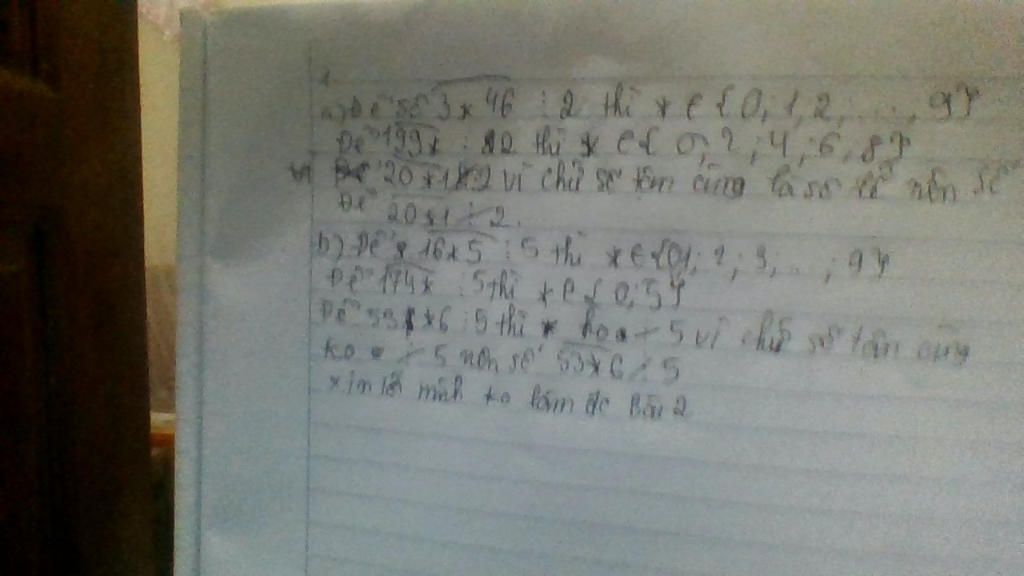 1.
a) Để số 3*46 ⋮ 2 thì * ∈ {0, 1, 2, ..., 9}
Để 199* ⋮ 2 thì * ∈ {0, 2, 4, 6, 8}
20*1 ⋮̸ 2 vì chữ số tận cùng là số lẻ nên số
20*1 ⋮̸ 2.
b) Để *16*5 ⋮ 5 thì * ∈ {0, 1; 2; 3, ...; 9}
Để 174* ⋮ 5 thì * ∈ {0; 5}
Để 53*6 ⋮ 5 thì * ko ⋮̸ 5 vì chữ số tận cùng
ko ⋮̸ 5 nên số 53*6 ⋮̸ 5
xin lỗi mình ko làm đc Bài 2